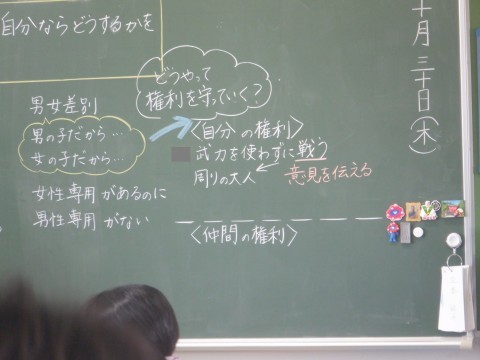 十月三十日(木)
自分ならどうするかを
どうやって
権利を守っていく?
男女差別
男の子だから…
女の子だから…
女性専用があるのに
男性専用がない
〈自分の権利〉
武力を使わずに戦う
周りの大人
意見を伝える
〈仲間の権利〉